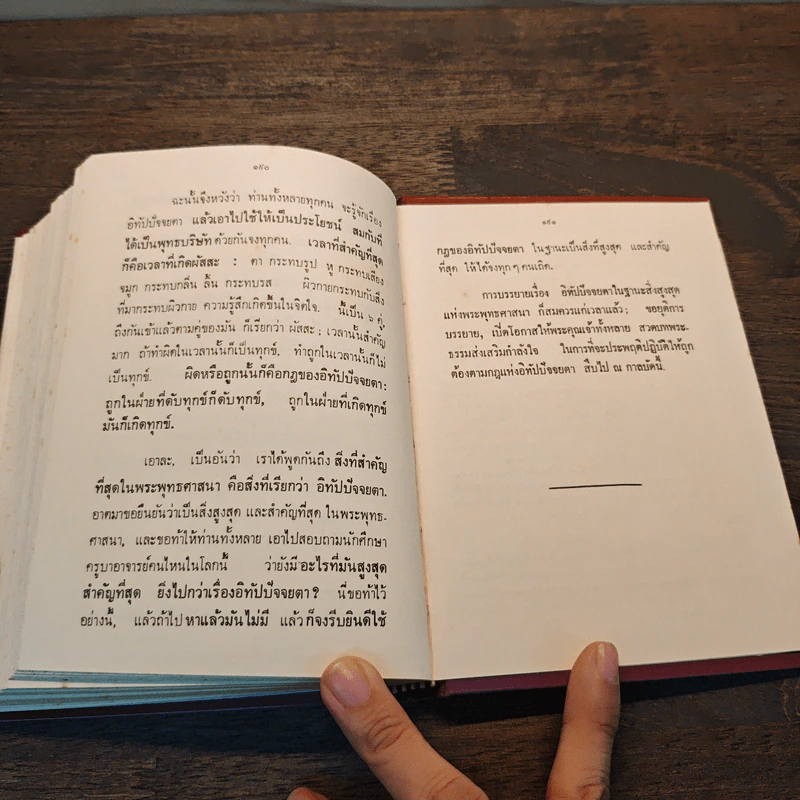 ๑๙๐
ฉะนั้นจึงหวังว่า ท่านทั้งหลายทุกคน จะรู้จักเรื่อง
อิทัปปัจจยตา แล้วเอาไปใช้ให้เป็นประโยชน์ สมกับที่
ได้เป็นพุทธบริษัท ด้วยกันจงทุกคน. เวลาที่สำคัญที่สุด
ก็คือเวลาที่เกิดผัสสะ : ตา กระทบรูป หู กระทบเสียง
จมูก กระทบกลิ่น ลิ้น กระทบรส ผิวกายกระทบกับสิ่ง
ที่มากระทบผิวกาย ความรู้สึกเกิดขึ้นในจิตใจ. นี้เป็น ๖ คู่,
ถึงกันเข้าแล้วตามคู่ของมัน ก็เรียกว่า ผัสสะ; เวลานั้นสำคัญ
มาก ถ้าทำผิดในเวลานั้นก็เป็นทุกข์, ทำถูกในเวลานั้นก็ไม่
เป็นทุกข์. ผิดหรือถูกนั้นก็คือกฎของอิทัปปัจจยตา:
ถูกในฝ่ายที่ดับทุกข์ก็ดับทุกข์, ถูกในฝ่ายที่เกิดทุกข์
มันก็เกิดทุกข์.
เอาละ, เป็นอันว่า เราได้พูดกันถึง สิ่งที่สำคัญ
ที่สุดในพระพุทธศาสนา คือสิ่งที่เรียกว่า อิทัปปัจจยตา.
อาตมาขอยืนยันว่าเป็นสิ่งสูงสุด และสำคัญที่สุด ในพระพุทธ-
ศาสนา, และขอท้าให้ท่านทั้งหลาย เอาไปสอบถามนักศึกษา
ครูบาอาจารย์คนไหนในโลกนี้ ว่ายังมีอะไรที่มันสูงสุด
สำคัญที่สุด ยิ่งไปกว่าเรื่องอิทัปปัจจยตา? นี่ขอท้าไว้
อย่างนี้, แล้วถ้าไป หาแล้วมันไม่มี แล้ว ก็จงรีบยินดีใช้
๑๙๑
กฎของอิทัปปัจจยตา ในฐานะเป็นสิ่งที่สูงสุด และสำคัญ
ที่สุด ให้ได้จงทุก ๆ คนเถิด.
การบรรยายเรื่อง อิทัปปัจจยตาในฐานะสิ่งสูงสุด
แห่งพระพุทธศาสนา ก็สมควรแก่เวลาแล้ว; ขอยุติการ
บรรยาย, เปิดโอกาสให้พระคุณเจ้าทั้งหลาย สวดบทพระ-
ธรรมส่งเสริมกำลังใจ ในการที่จะประพฤติปฏิบัติให้ถูก
ต้องตามกฎแห่งอิทัปปัจจยตา สืบไป ณ กาลบัดนี้.